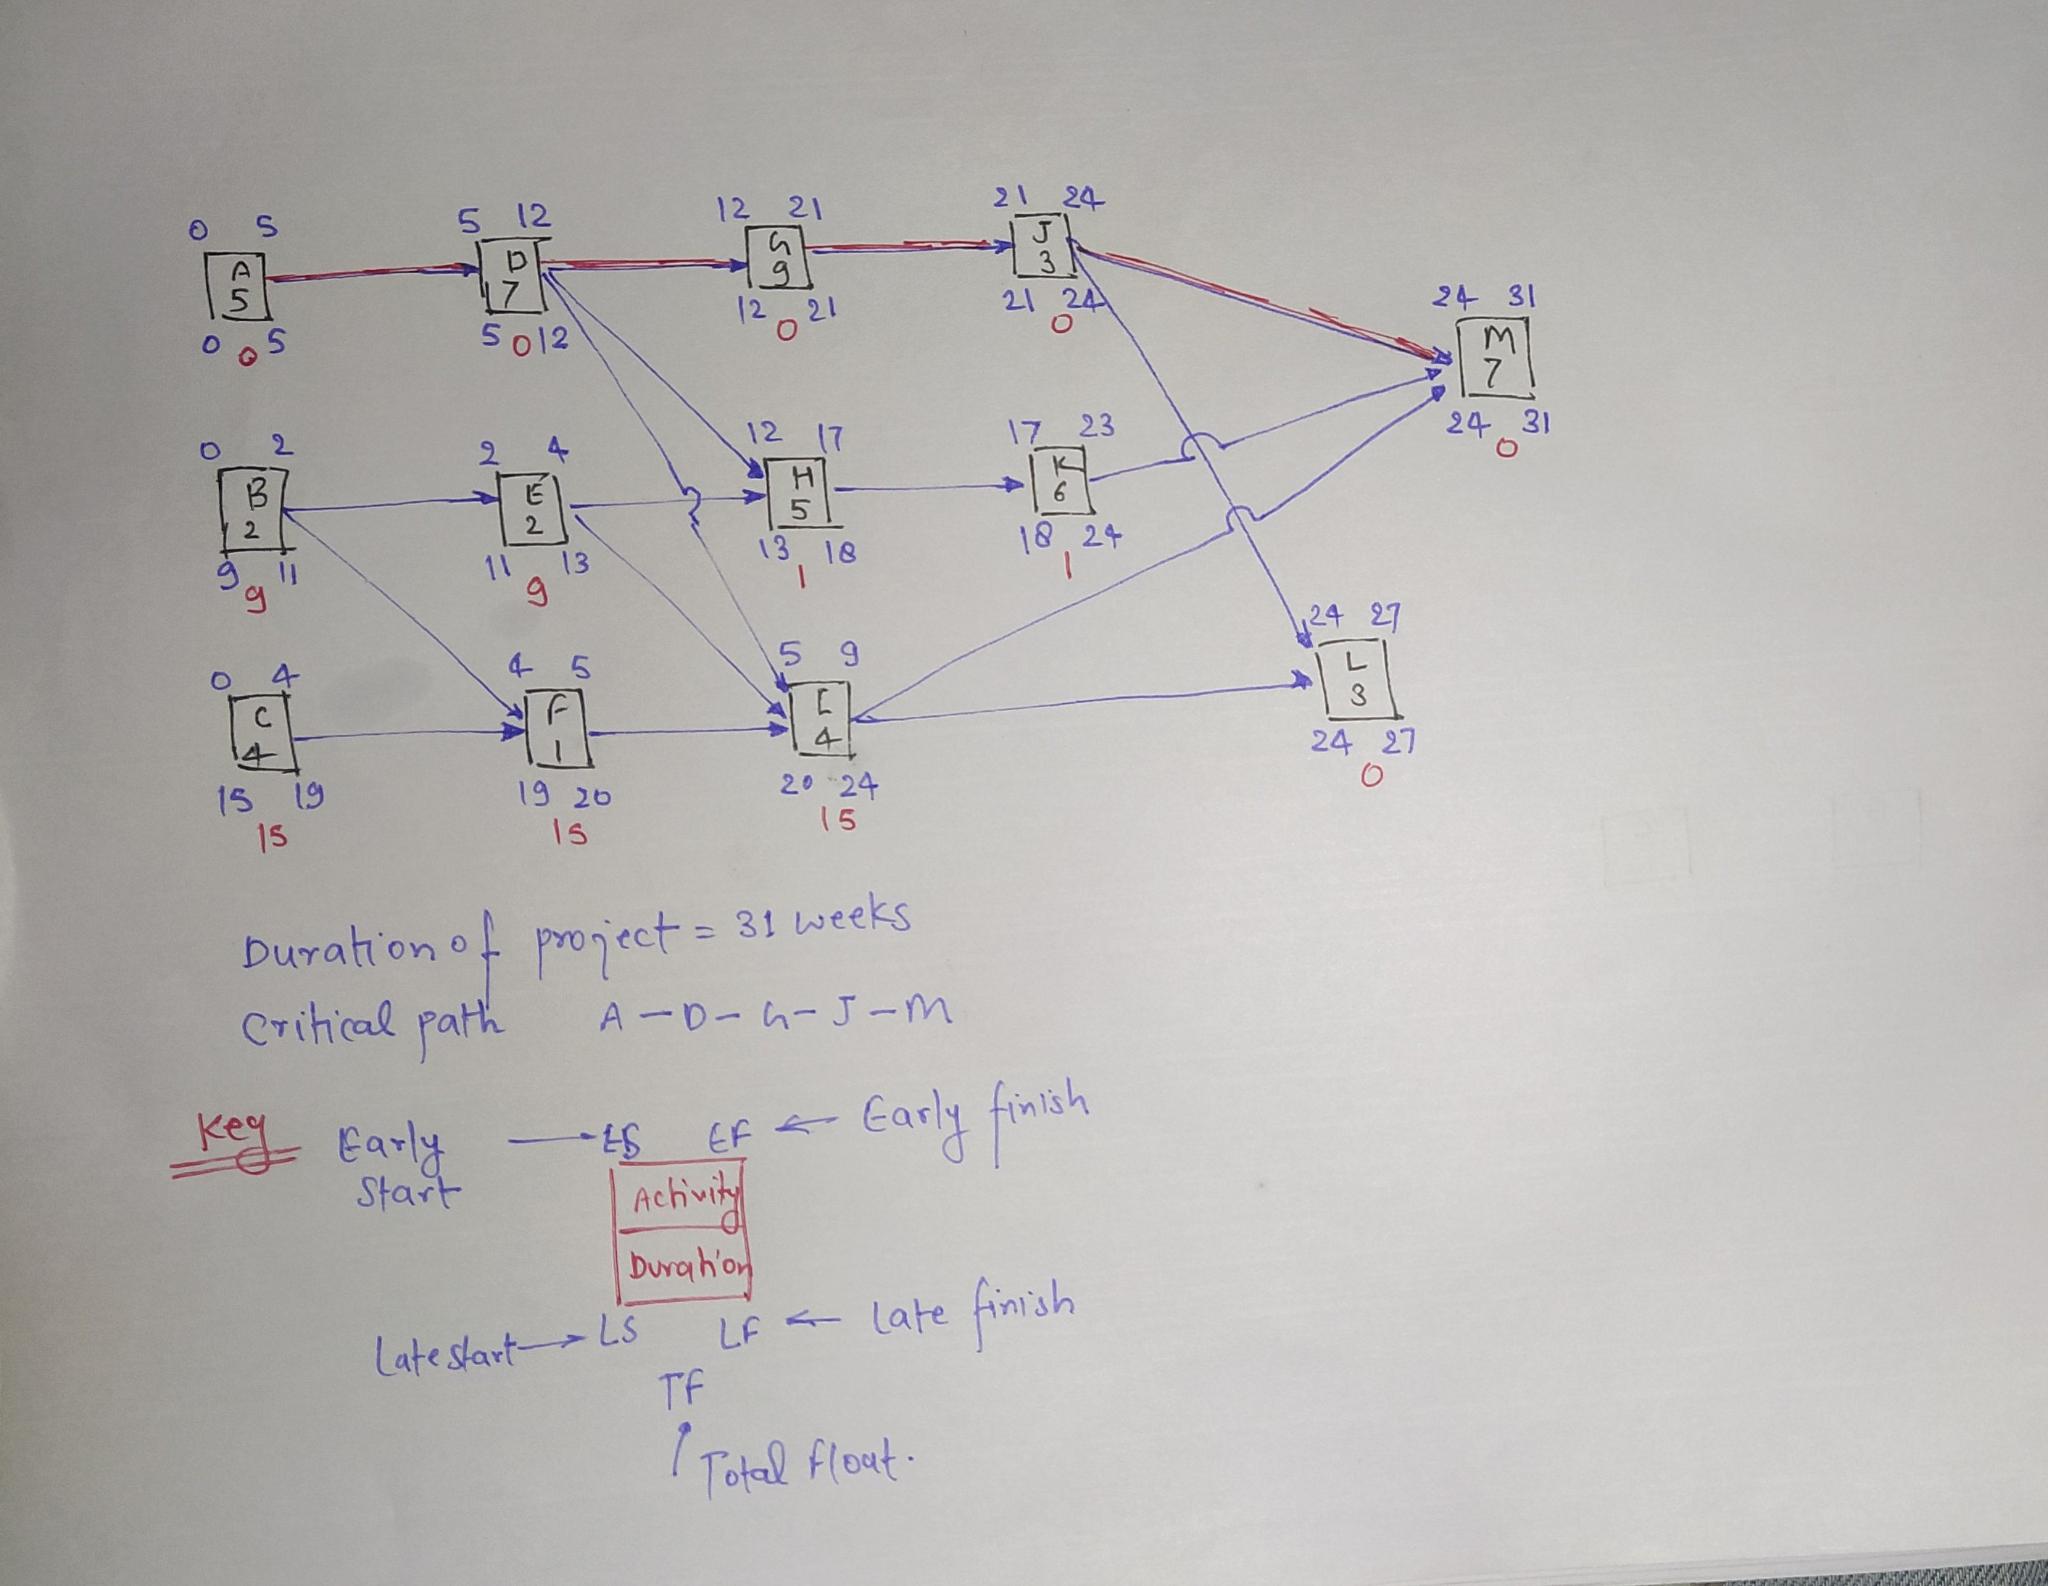 0 5
A
5
0 0 5
5 12
D
7
5 0 12
12 21
G
9
12 0 21
21 24
J
3
21 24
0
24 31
M
7
24 31
0
0 2
B
2
9 11
9
2 4
E
2
11 13
9
12 17
H
5
13 18
1
17 23
K
6
18 24
1
0 4
C
4
15 19
15
4 5
F
1
19 20
15
5 9
I
4
20 24
15
24 27
L
3
24 27
0
Duration of project = 31 weeks
Critical path A - D - G - J - M
Key Early Start → ES EF ← Early finish
Activity
Duration
Late start → LS LF ← Late finish
TF
Total float.